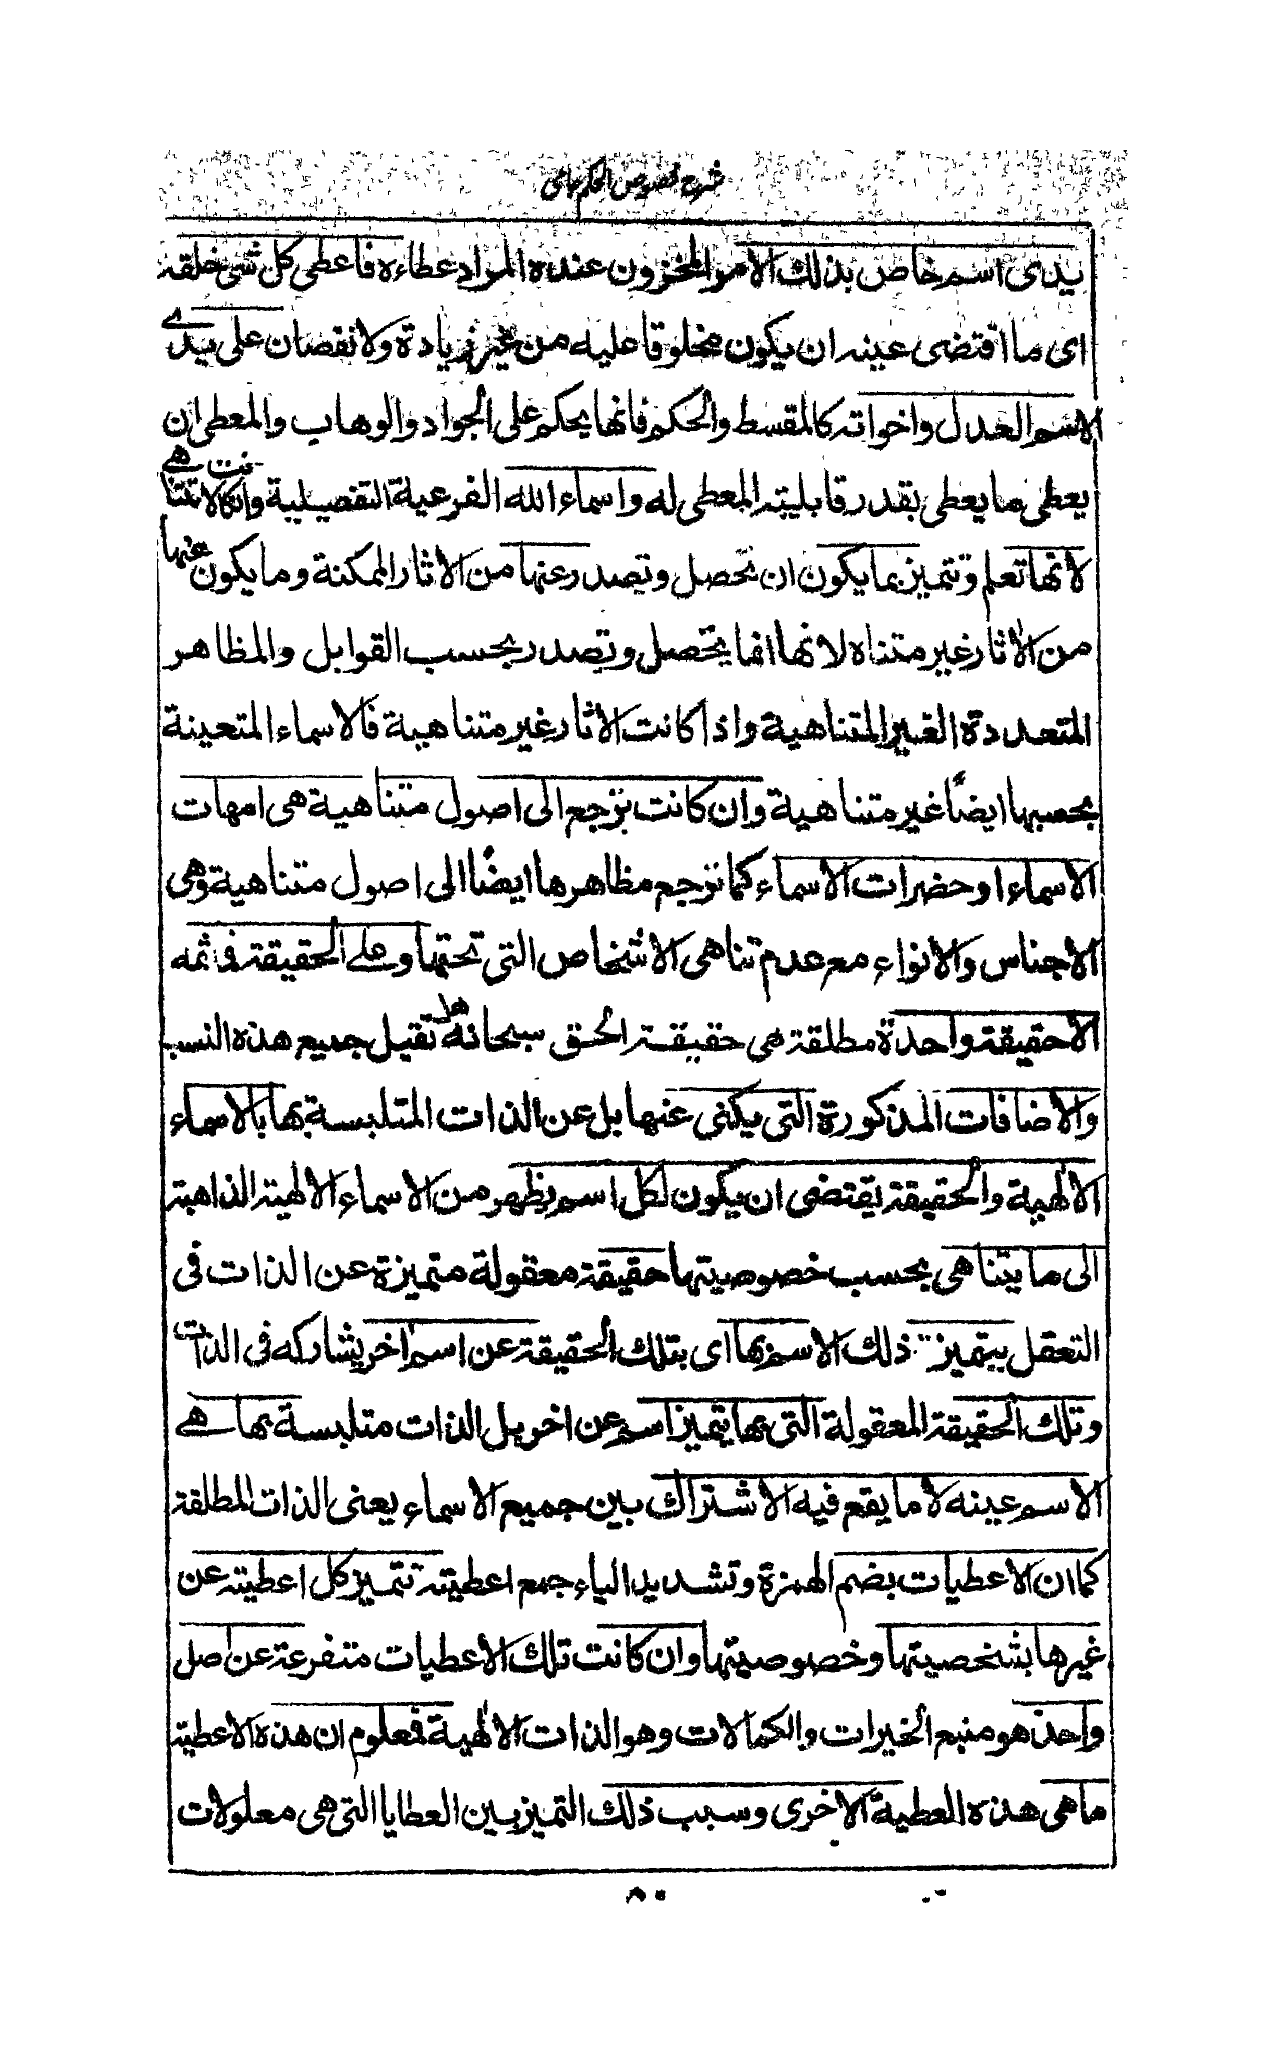 شرح فصوص الحكم جامى
يدى اسم خاص بذلك الامر المخزون عنده المراد عطاءه فاعطى كل شئ خلقه
اى ما اقتضى عينه ان يكون مخلوقا عليه من غير زيادة ولا نقصان على يدے
الاسم العدل واخواته كالمقسط والحكم فانها يحكم على الجواد والوهاب والمعطى ان
يعطى ما يعطى بقدر قابلية المعطى له واسماء الله الفرعية التفصيلية وان كانت لا تتناهے
لانها تعلم وتتميز بما يكون ان تحصل وتصدر عنها من الاثار الممكنة وما يكون عنها
من الاثار غير متناه لانها انما يحصل وتصدر بحسب القوابل والمظاهر
المتعددة الغير المتناهية واذا كانت الاثار غير متناهية فالاسماء المتعينة
بحسبها ايضاً غير متناهية وان كانت ترجع الى اصول متناهية هى امهات
الاسماء او حضرات الاسماء كما ترجع مظاهرها ايضًا الى اصول متناهية وهى
الاجناس والانواع مع عدم تناهى الاشخاص التى تحتها وعلے الحقيقة فما ثمه
الا حقيقة واحدة مطلقة هى حقيقة الحق سبحانه تقبل جميع هذه النسب
والاضافات المذكورة التى يكنى عنها بل عن الذات المتلبسة بها بالاسماء
الالٰهية والحقيقة يقتضى ان يكون لكل اسم يظهر من الاسماء الالٰهية الذاهبة
الى ما يتناهى بحسب خصوصيتها حقيقة معقولة متميزة عن الذات فى
التعقل يتميز ذلك الاسم بها اى بتلك الحقيقة عن اسم اخر يشاركه فى الذات
وتلك الحقيقة المعقولة التى بها يتميز اسم عن اخر بل الذات متلبسة بها هے
الاسم عينه لا ما يقع فيه الاشتراك بين جميع الاسماء يعنى الذات المطلقة
كما ان الاعطيات بضم الهمزة وتشديد الياء جمع اعطية تتميز كل اعطية عن
غيرها بشخصيتها وخصوصيتها وان كانت تلك الاعطيات متفرعة عن اصل
واحد هو منبع الخيرات والكمالات وهو الذات الالٰهية فمعلوم ان هذه الاعطية
ما هى هذه العطية الاخرى وسبب ذلك التميز بين العطايا التى هى معلولات
٨٠